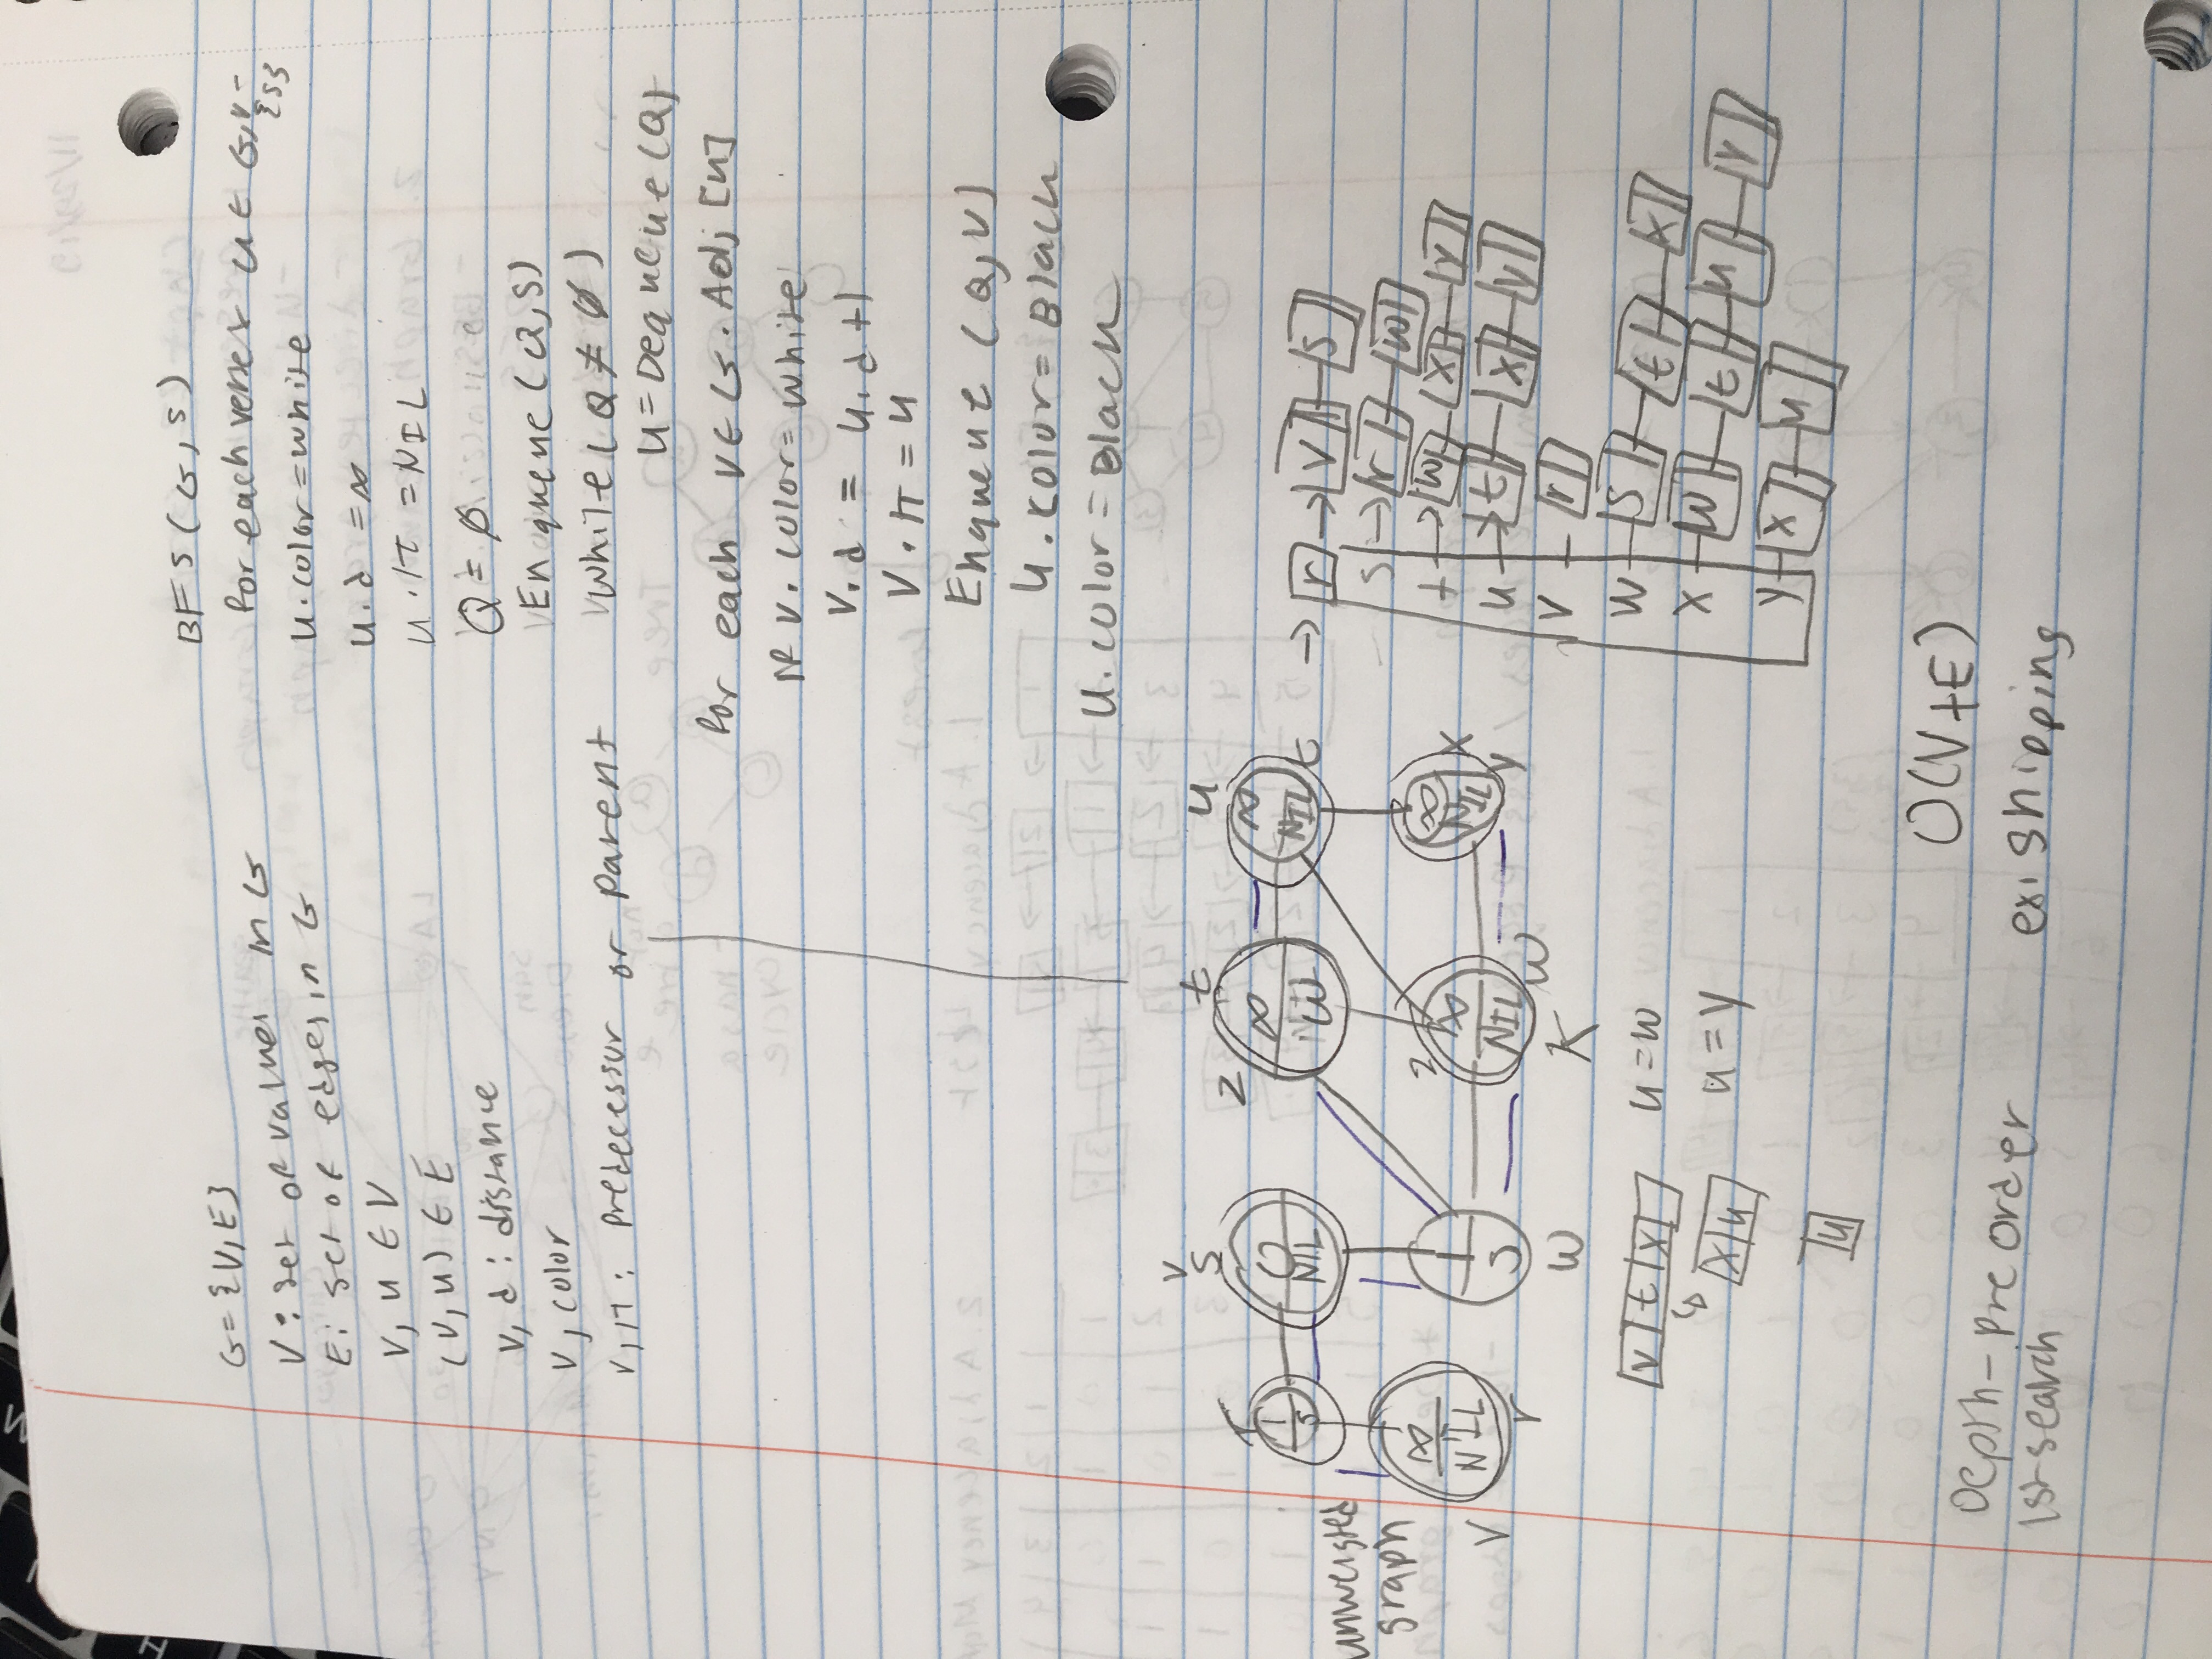 G={V,E}
V: set of values in G
E: set of edges in G
V, u ∈ V
(V,u) ∈ E
V, d : distance
V, color
V, π : Predecessor or parent
BFS(G,S)
for each vertex u ∈ G,V-{S}
u.color=white
u.d =∞
u.π =NIL
Q = ∅
Enqueue(Q,S)
While(Q ≠ ∅)
u=Dequeue(Q)
for each V∈G.Adj[u]
If V.color=white
V.d = u.d+1
V.π = u
Enqueue (Q,V)
u.color= Black
u.color=Black
V
r S Z t u
1 0 ∞ ∞
S NIL W NIL t
unweighted
graph
∞ 1 2 ∞ ∞
NIL S NIL NIL X
V r W K W y
→ r → V S
S → r W
t → W X Y
u → t X Y
V r
W S t X
X W t u Y
Y X u
V t X u=w
X u u=y
u
O(V+E)
Depth-Preorder
1st-search
ex: shipping